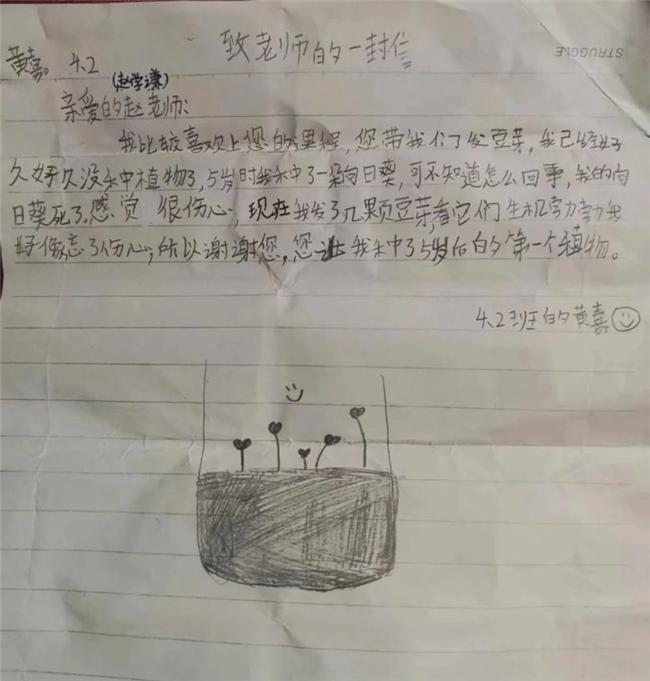 致老师的一封信
STRUGGLE
黄嘉。 4.2
(赵学谦)
亲爱的赵老师:
我比较喜欢上您的课程,您带我们了发豆芽,我已经好
久好久没种植物了,5岁时我种了一朵向日葵,可不知道怎么回事,我的向
日葵死了。感觉 很伤心,现在我发了几颗豆芽,看它们生机勃勃我
好像忘了伤心,所以谢谢您,您让我种了5岁后的第一个植物。
4.2班的黄嘉